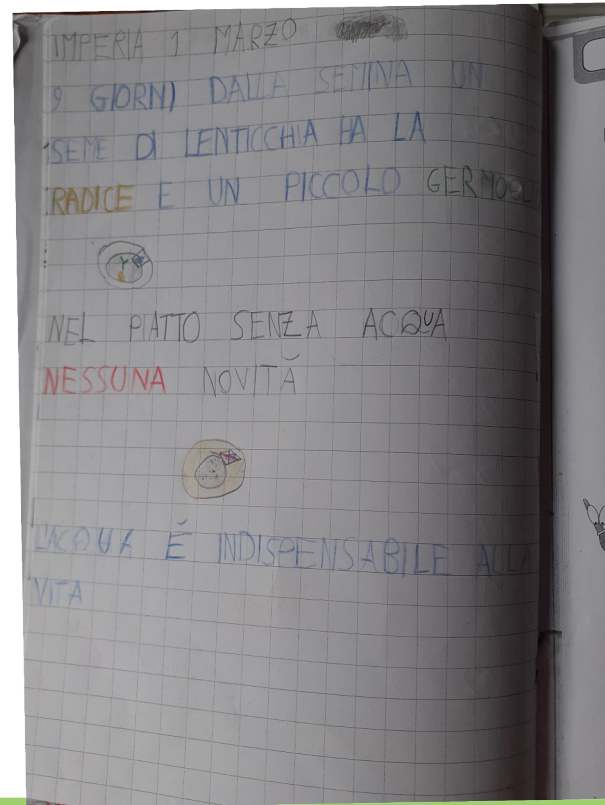 IMPERIA 1 MARZO
9 GIORNI DALLA SEMINA UN
SEME DI LENTICCHIA HA LA
RADICE E UN PICCOLO GERMOGL
NEL PIATTO SENZA ACQUA
NESSUNA NOVITÀ
L'ACQUA È INDISPENSABILE ALLA
VITA